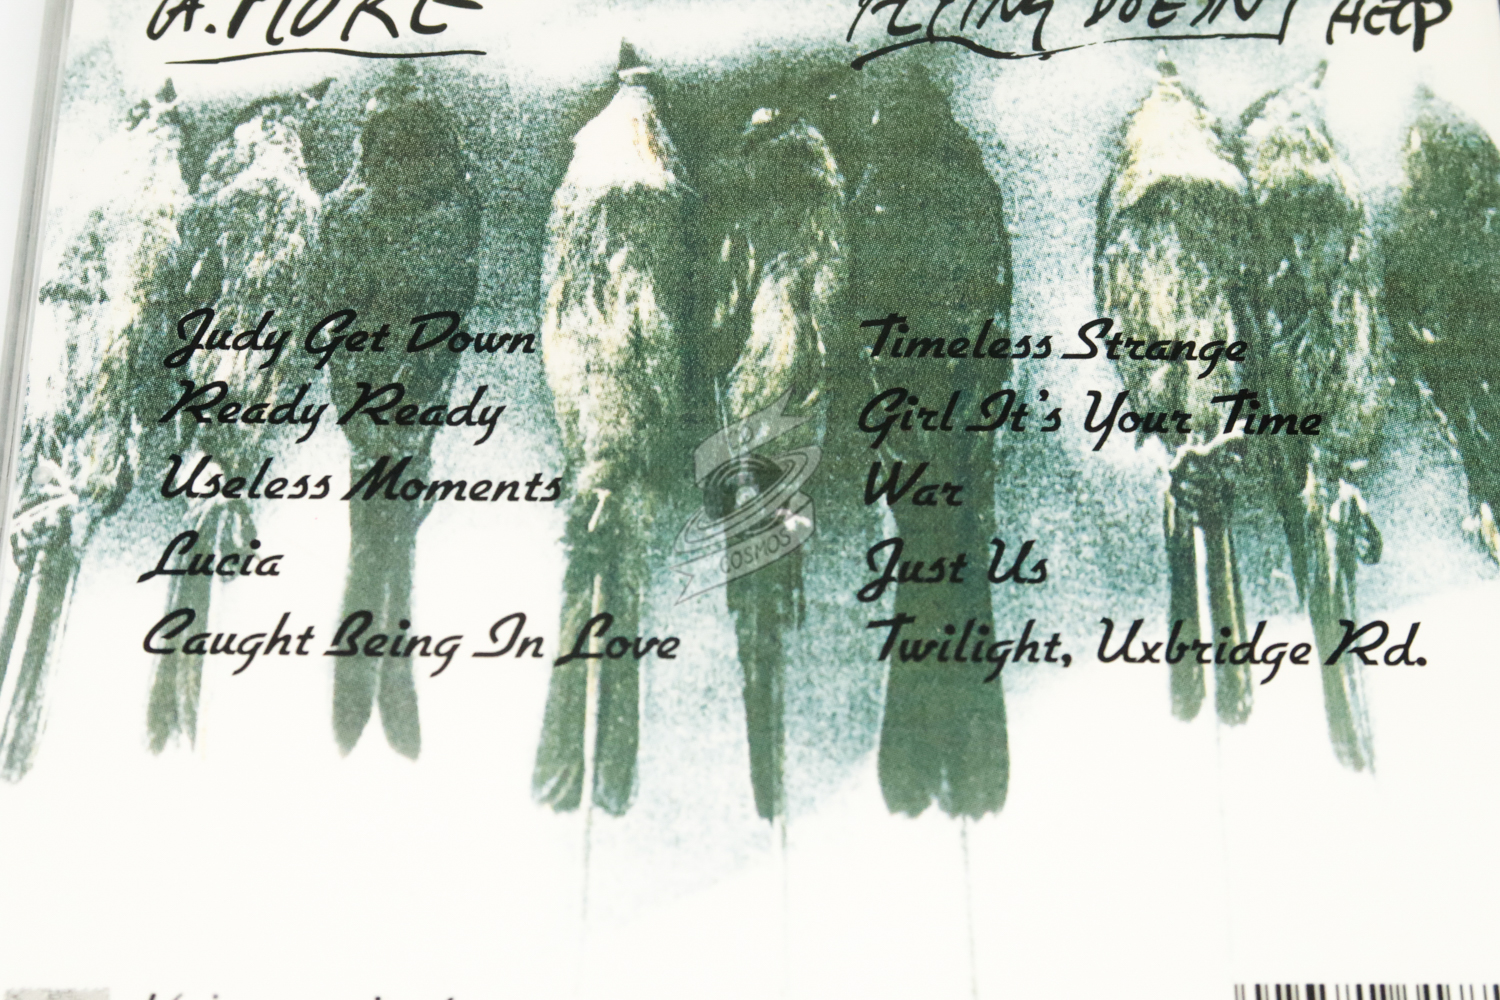 A. MORE
FLYING DOESN'T HELP
Judy Get Down
Ready Ready
Useless Moments
Lucia
Caught Being In Love
Timeless Strange
Girl It's Your Time
War
Just Us
Twilight, Uxbridge Rd.
COSMOS